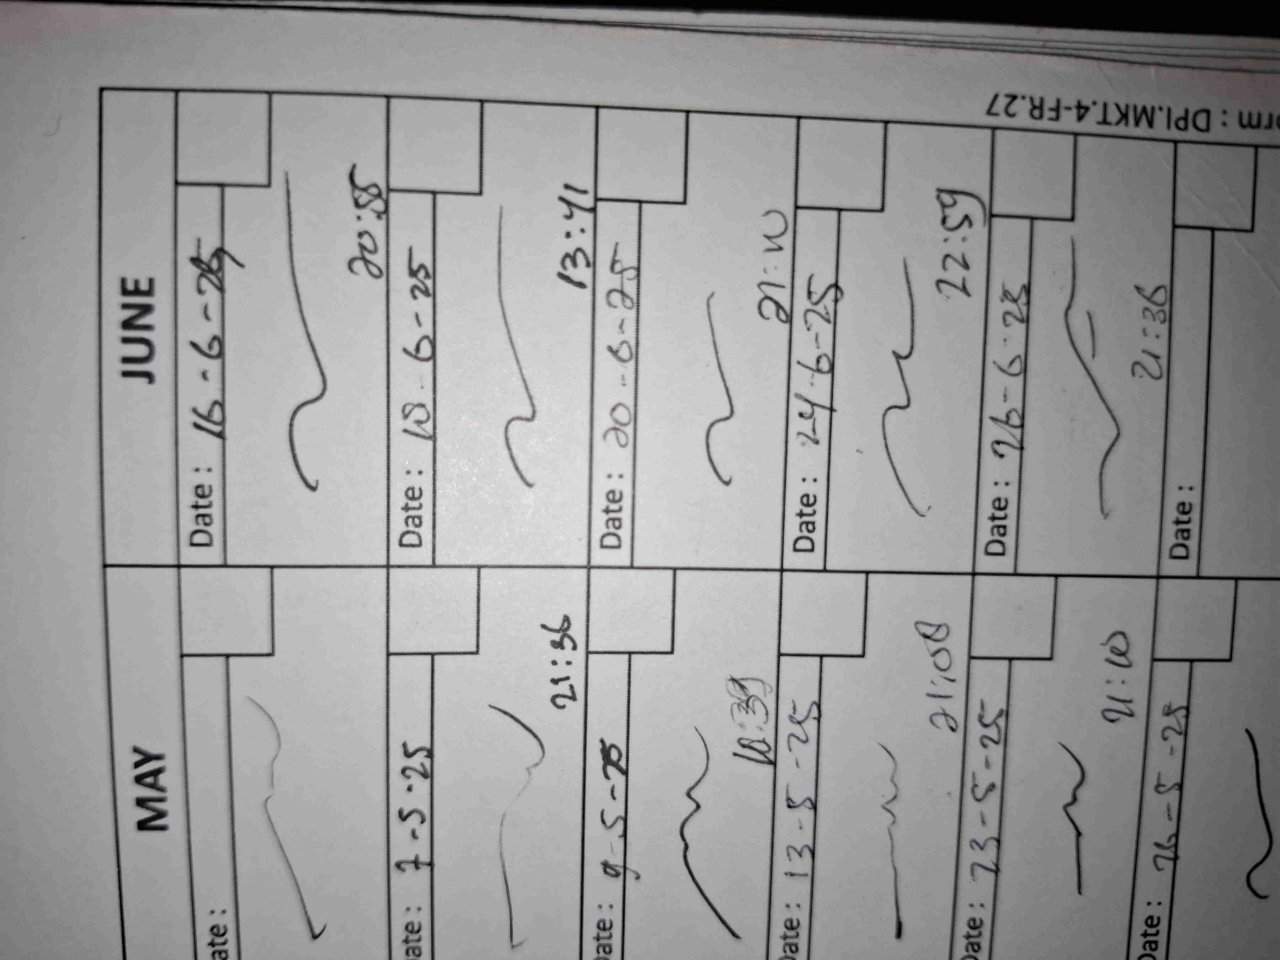 MAY JUNE
ate : Date : 16-6-25
20:55
ate : 7-5-25 Date : 18-6-25
21:36 13:41
Date : 9-5-25 Date : 20-6-25
18:39 21:10
Date : 13-5-25 Date : 24-6-25
21:08 22:59
Date : 23-5-25 Date : 26-6-25
21:10 21:36
Date : 26-5-25 Date :
orm : DPI.MKT.4-FR.27